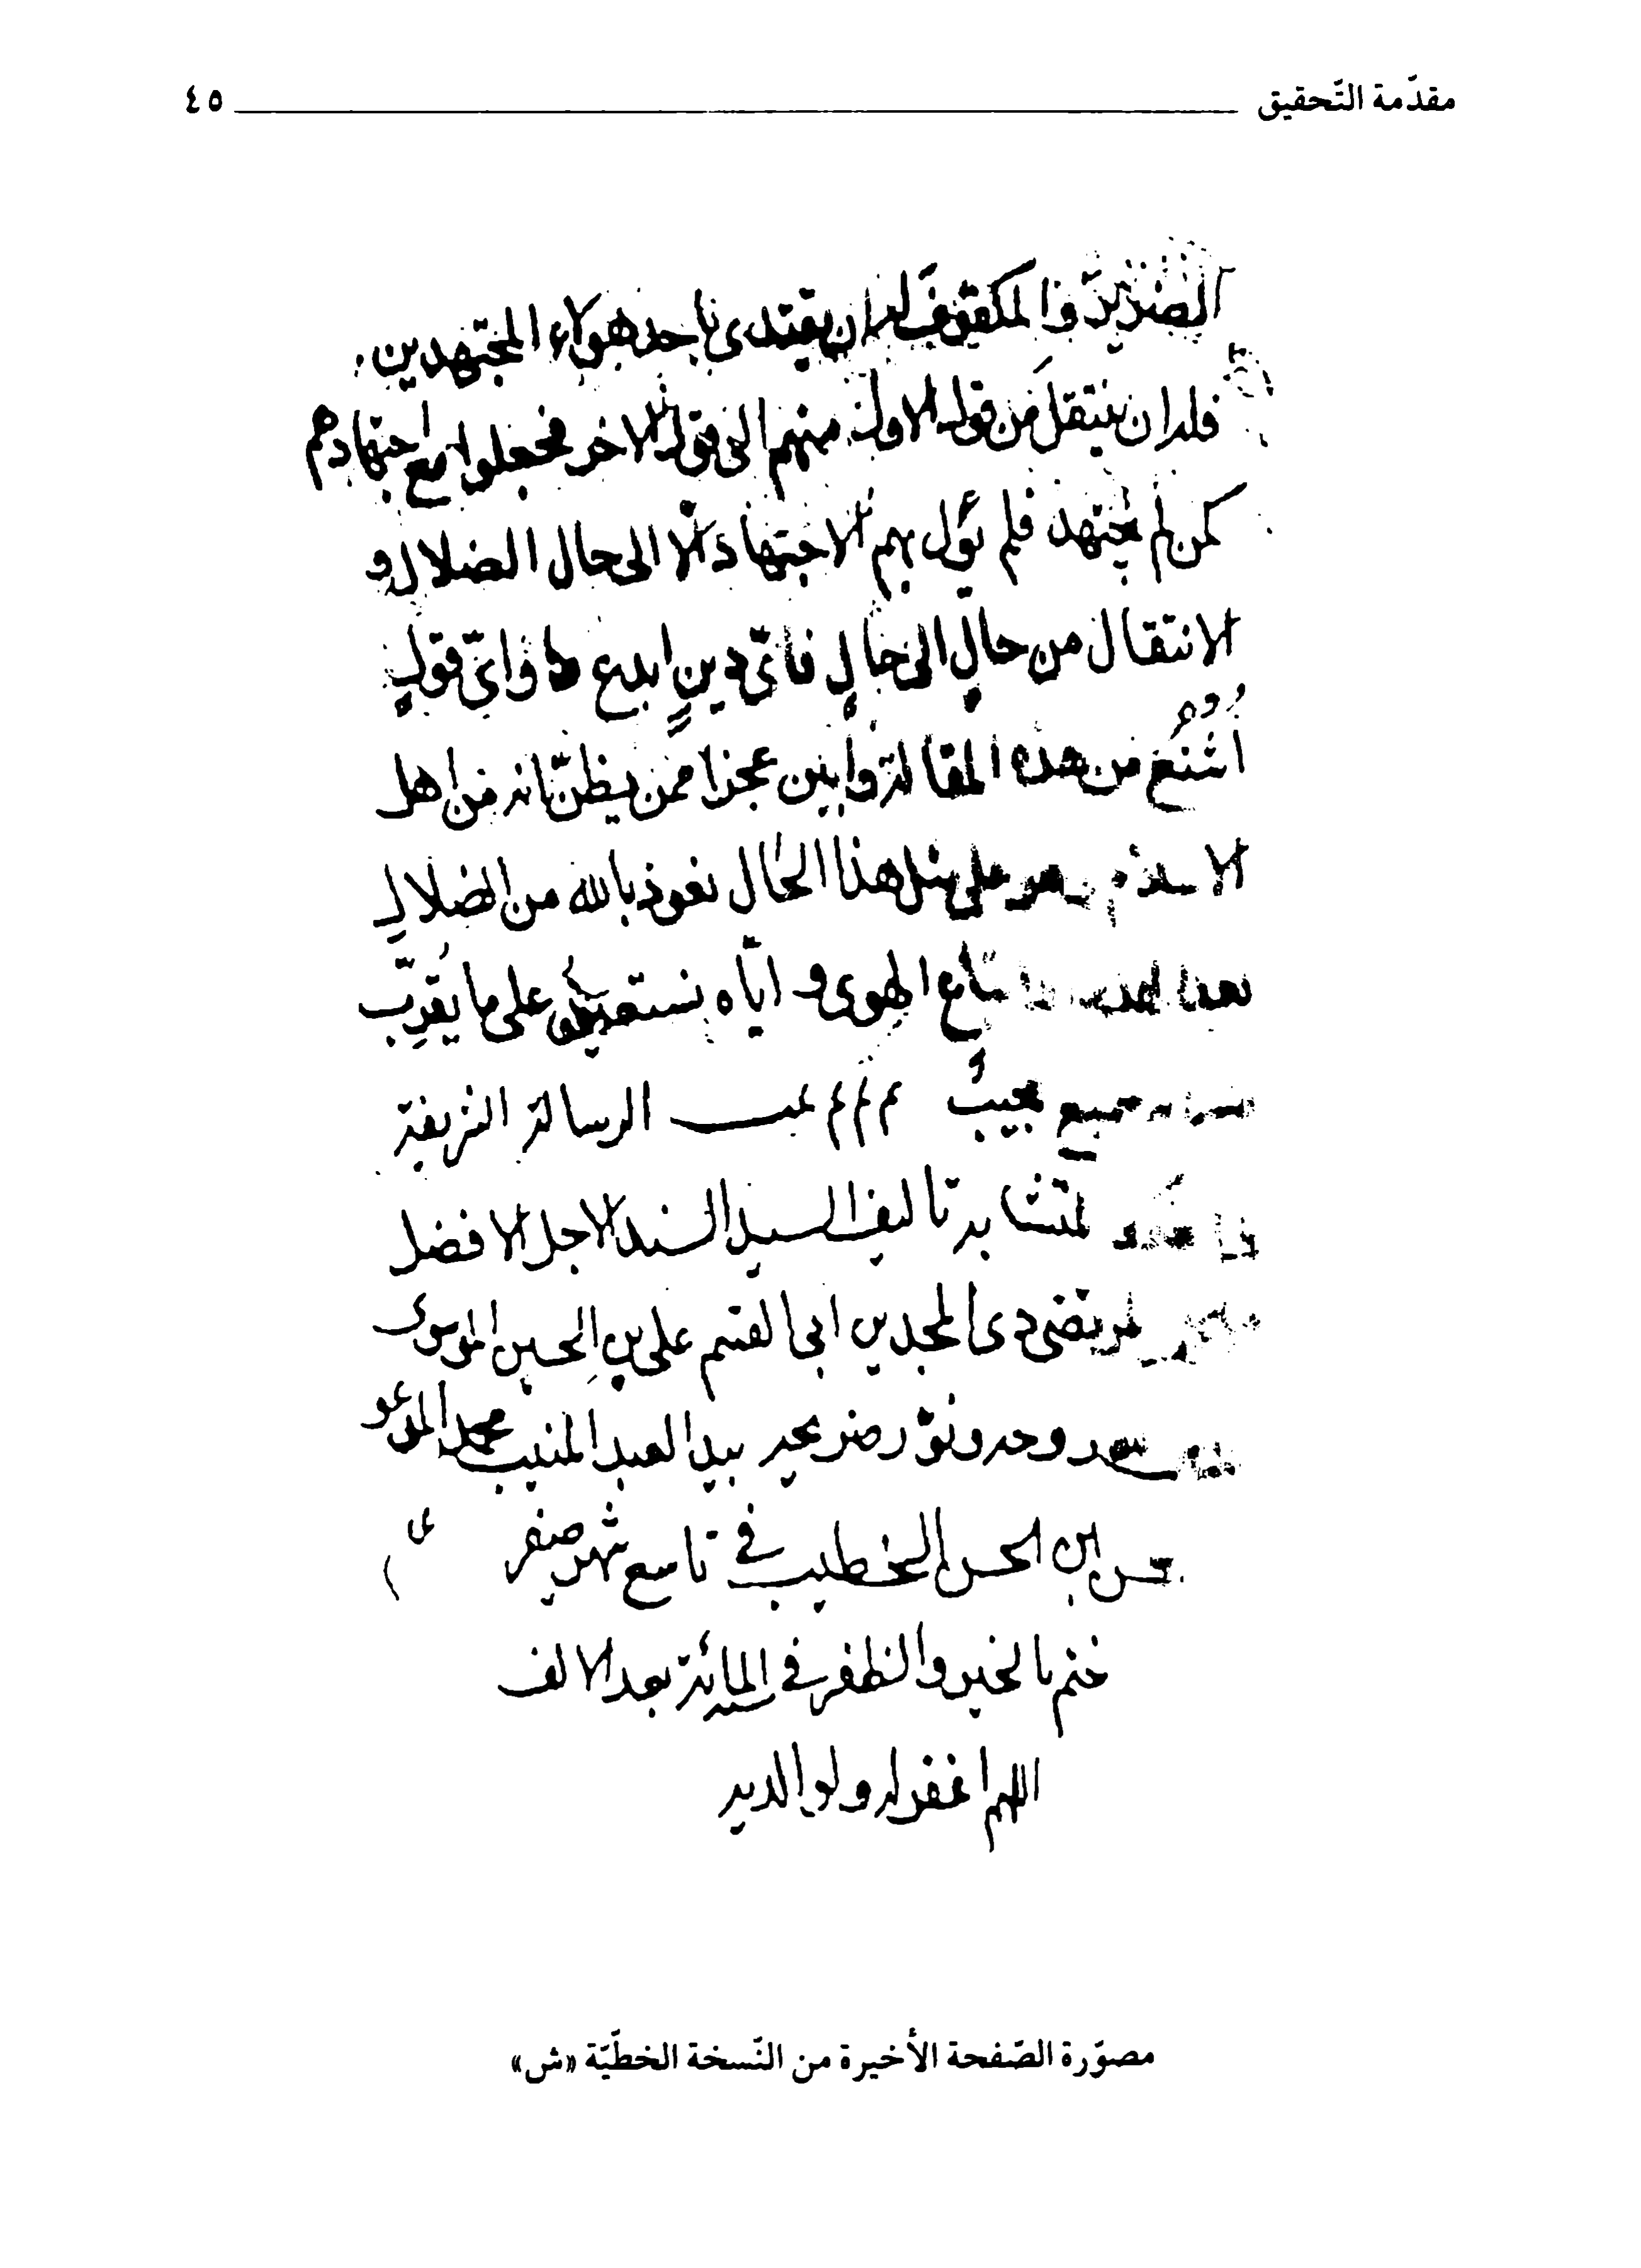 مقدّمة التّحقيق ٤٥
الضرير والمكفوف له ان يقتدى باحد هولاء المجتهدين
فله ان ينتقل من قول الاول منهم الى قول الاخر فجعلوا مع اجتهادهم
كمن لم يجتهد فلم يؤل بهم الاجتهاد الا الى حال الضلال و
الانتقال من حالٍ الى حالٍ فاىّ دينٍ ابدع واىّ قولٍ
اشنع من هذه المقالة وابين عجزا ممن يظنّ انه من اهل
على مثل هذا الحال نعوذ بالله من الضلال
الهوى و ايّاه نستعين على ما يُقرّب
سميع مجيبٌ الرسالة الشريفة
المتشابه تاليف السيد السند الاجل الافضل
المرتضى ذى المجدين ابى القسم على بن الحسين الموسوى
روحه ونوّر ضريحه بيد العبد المذنب محمد المدعو
ابن الحسن الخطيب في تاسع شهر صفر
ختم بالخير والظفر في المائة بعد الالف
اللهم اغفر له ولوالديه
مصوّرة الصّفحة الأخيرة من النّسخة الخطيّة «ش»